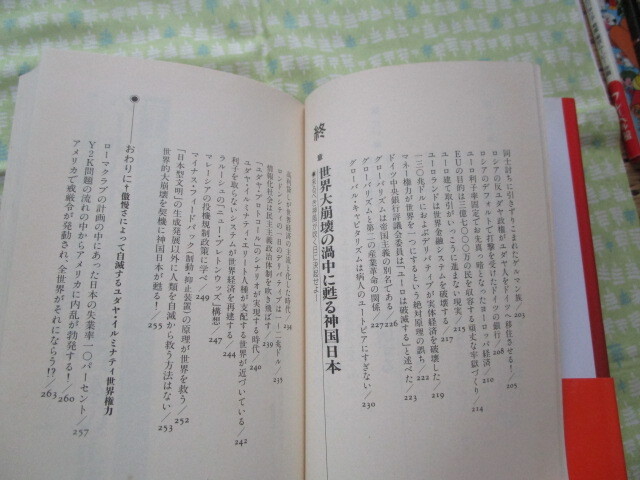 同士討ちに引きずりこまれたゲルマン族／203
ロシアの反ユダヤ政権がユダヤ人をドイツへ移住させる！／205
ロシアのデフォルトで打撃を受けたドイツの銀行／208
ユーロ利子率国でお先真っ暗となったヨーロッパ経済／210
EUの目的は二億七〇〇〇万の民を収容する頑丈な牢獄づくり／214
ユーロ建て取引がいっこうに進まない現実／215
ユーロランドは世界金融システムを破壊する／217
一三〇兆ドルにおよぶデリバティブが実体経済を破壊した／219
マネー権力が世界を一つにするという絶対原理の誤ち／222
ドイツ中央銀行評議会委員は「ユーロは破滅する」と述べた／223
グローバリズムは帝国主義の別名である／226
グローバリズムと第二の産業革命の関係／227
グローバルキャピタリズムは病人のユートピアにすぎない／230
終章 世界大崩壊の渦中に甦る神国日本
234
ロンドンとNYの一日のデリバは一・一二兆ドル／235
情報化社会は民主主義政治体制を吹き飛ばす／239
「ユダヤ・プロトコール」のシナリオが実現する時代／240
ユダヤ・イルミナティ・エリート人種が支配する世界が近づいている／242
利子を取らないシステムが世界経済を再建する／244
ラルーシュの「ニュー・ブレトンウッズ」構想／247
マレーシアの投機規制政策に学べ／249
マイナス・フィードバック（制動・抑止装置）の原理が世界を救う／252
「日本型文明」の生成発展以外に人類を自滅から救う方法はない／253
世界的大崩壊を契機に神国日本が甦る！／255
おわりに†傲慢さによって自滅するユダヤ・イルミナティ世界権力
ローマクラブの計画の中にあった日本の失業率一〇パーセント／257
Y2K問題の流れの中からアメリカに内乱が勃発する！／260
アメリカで戒厳令が発動され、全世界がそれにならう!?／263